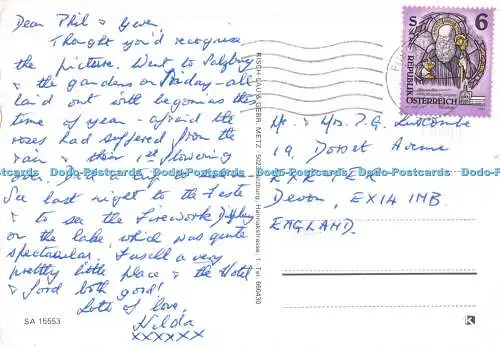 Dear Phil & Gwen
Thought you'd recognise
the picture. Went to Salzburg
& the gardens on Friday - all
laid out with begonias this
time of year - afraid the
roses had suffered from the
rain & their 1st flowering
over.
See last night to the Feste
& to see the Firework Display
on the lake, which was quite
spectacular. Fuschl a very
pretty little place & the Hotel
& food both good!
Lots of love,
Hilda
xxxxxx
SA 15553
RISCH-LAU & GEBR. METZ, 5020 Salzburg, Hannakstrasse 1 - Tel. 660430
S 6
REPUBLIK
ÖSTERREICH
Mr. & Mrs. P.G. Luscombe
19 Dorset Avenue
EXETER
Devon, EX4 1NB.
ENGLAND.
K
Dodo-Postcards Dodo-Postcards Dodo-Postcards Dodo-Postcards